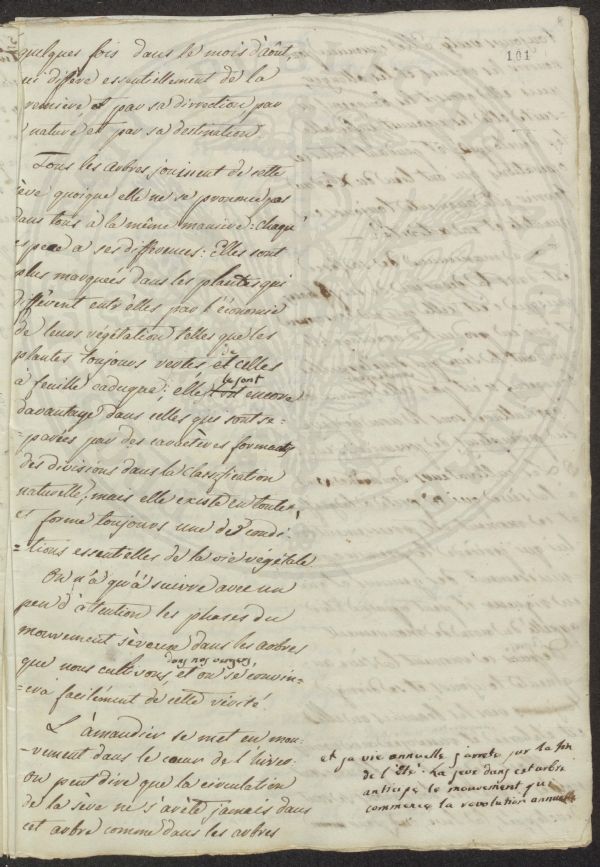 101
quelques fois dans le mois d'août,
qui diffère essentiellement de la
premiere et par sa direction par
sa nature et par sa destination
Tous les arbres jouissent de cette
sève quoique elle ne se prononce pas
dans tous à la même maniere: chaque
espece a ses differences: Elles sont
plus marquées dans les plantes qui
diffèrent entr'elles par l'économie
de leurs végétation telles que les
plantes toujours vertes et celles
à feuille caduque; elles le sont encore
davantage dans celles qui sont se-
-parées par des caractères formants
des divisions dans la classification
naturelle; mais elle existe en toutes
et forme toujours une des condi-
-tions essentielles de la vie végétale
On n'a qu'à suivre avec un
peu d'atention les phases du
mouvement sèveux dans les arbres
que nous cultivons dans nos vergers, et on se convin-
cra facilement de cette vérité
L'amandier se met en mou-
-vement dans le cœur de l'hiver.
On peut dire que la circulation
de la sève ne s'arête jamais dans
cet arbre comme dans les arbres
et sa vie annuelle s'arrete sur la fin
de l'Eté. La seve dans cet arbre
anticipe le mouvement que
commence la revolution annuelle